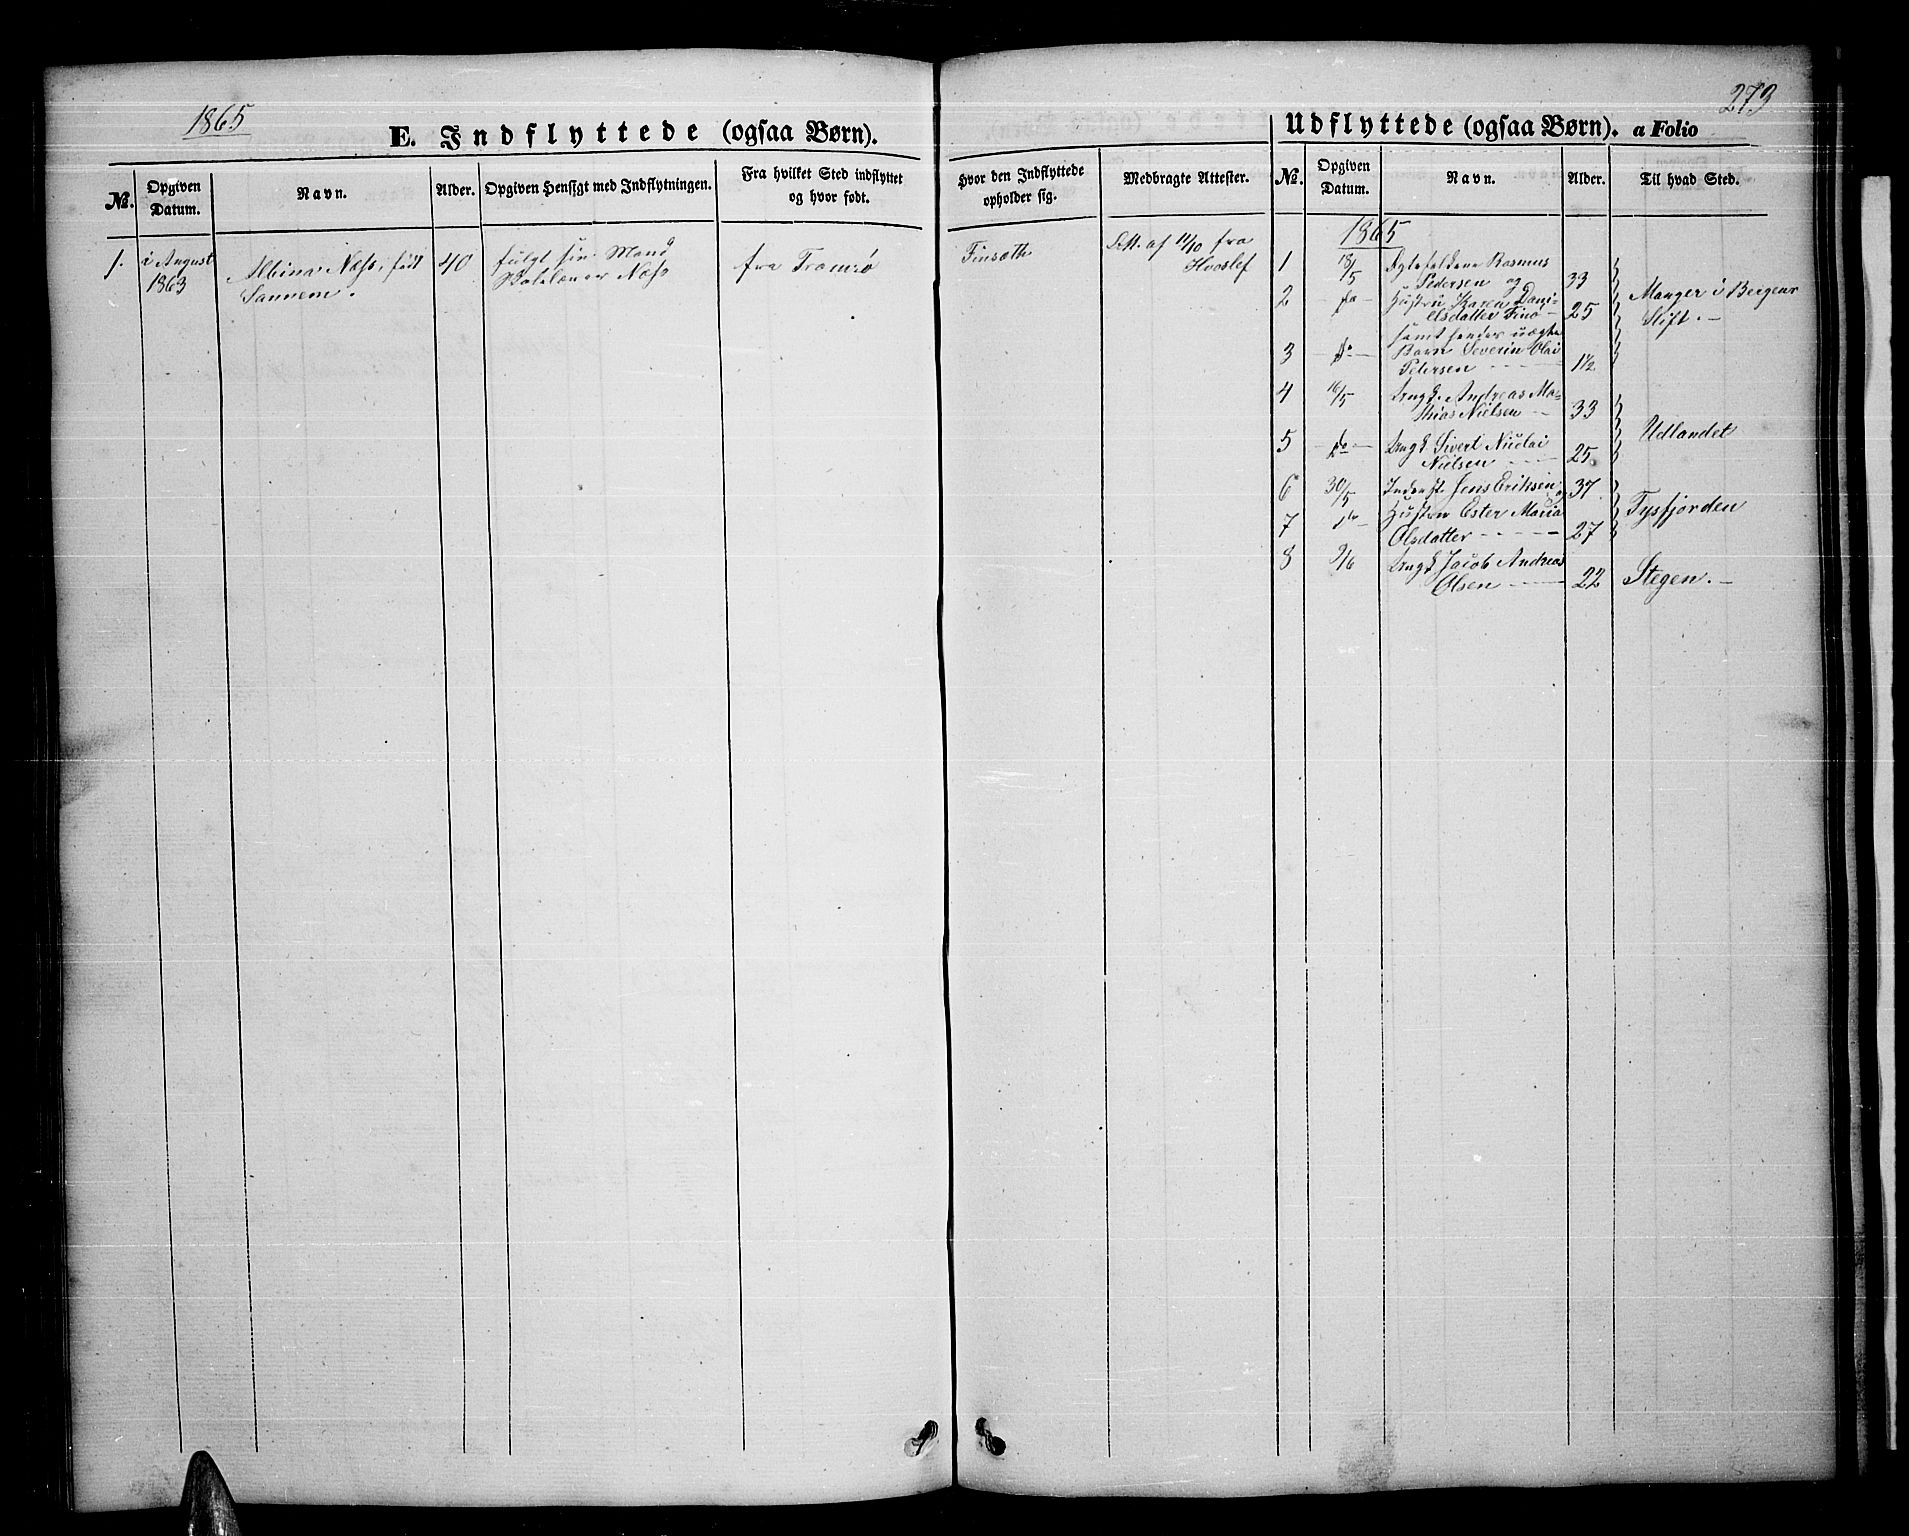 1865
E. Indflyttede (ogsaa Børn).
№.
Opgiven Datum.
Navn.
Alder.
Opgiven Hensigt med Indflytningen.
Fra hvilket Sted indflyttet og hvor født.
1. i August Albina Næss, født 40 fulgt sin Mand fra Tromsø
1863 Sannem. Næss
273
Udflyttede (ogsaa Børn). a Folio
Hvor den Indflyttede opholder sig.
Medbragte Attester.
№.
Opgiven Datum.
Navn.
Alder.
Til hvad Sted.
af 11/10 fra
Hvoslef
1865
1 18/5 Rasmus
Pedersen og 33
2 do Hustru Karen Dani-
elsdatter 25 Manger i Bergens
Stift.
samt hendes uægte
3 do Barn Severin Olai
Petersen 1½
4 16/5 Ungk. Andreas Ma-
thias Nielsen 33
5 do Ungk Sivert Nicolai
Nielsen 25 Udlandet
6 30/5 Inderst. Jens Eriksen og 37
7 do Hustru Ester Maria
Olsdatter 27 Tysfjorden
8 2/6 Ungk Jacob Andreas
Olsen 22 Stegen.